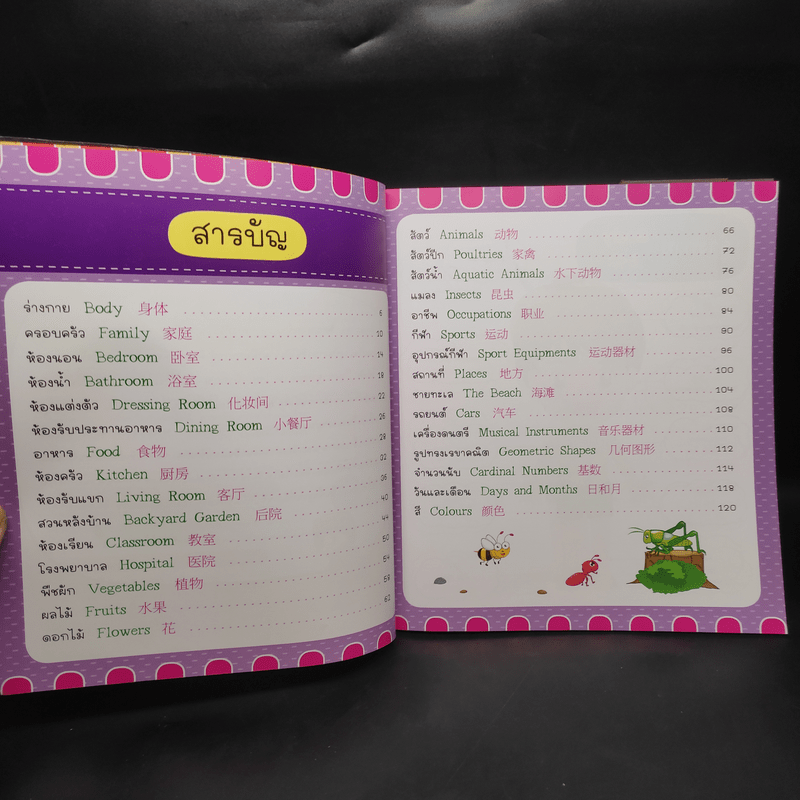 สารบัญ
ร่างกาย Body 身体 6
ครอบครัว Family 家庭 10
ห้องนอน Bedroom 卧室 14
ห้องน้ำ Bathroom 浴室 18
ห้องแต่งตัว Dressing Room 化妆间 22
ห้องรับประทานอาหาร Dining Room 小餐厅 26
อาหาร Food 食物 28
ห้องครัว Kitchen 厨房 32
ห้องรับแขก Living Room 客厅 36
สวนหลังบ้าน Backyard Garden 后院 40
ห้องเรียน Classroom 教室 44
โรงพยาบาล Hospital 医院 50
พืชผัก Vegetables 植物 54
ผลไม้ Fruits 水果 58
ดอกไม้ Flowers 花 62
สัตว์ Animals 动物 66
สัตว์ปีก Poultries 家禽 72
สัตว์น้ำ Aquatic Animals 水下动物 76
แมลง Insects 昆虫 80
อาชีพ Occupations 职业 84
กีฬา Sports 运动 90
อุปกรณ์กีฬา Sport Equipments 运动器材 96
สถานที่ Places 地方 100
ชายทะเล The Beach 海滩 104
รถยนต์ Cars 汽车 108
เครื่องดนตรี Musical Instruments 音乐器材 110
รูปทรงเรขาคณิต Geometric Shapes 几何图形 112
จำนวนนับ Cardinal Numbers 基数 114
วันและเดือน Days and Months 日和月 118
สี Colours 颜色 120